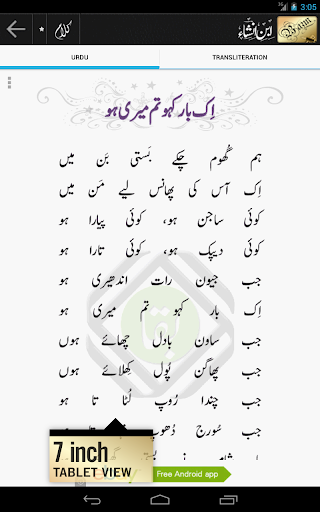 3:05
کلام
ابنِ انشاء
Bazm
URDU
TRANSLITERATION
اِک بار کہو تم میری ہو
ہم گُھوم چکے بَستی بَن میں
اِک آس کی پھانس لیے مَن میں
کوئی ساجن ہو، کوئی پیارا ہو
کوئی دیپک ہو، کوئی تارا ہو
جب جیون رات اندھیری ہو
اِک بار کہو تم میری ہو
جب ساون بادل چھائے ہوں
جب پھاگن پُول کِھلائے ہوں
جب چندا رُوپ لُٹا تا ہو
جب سُورج دُھوپ
7 inch
TABLET VIEW
Free Android app